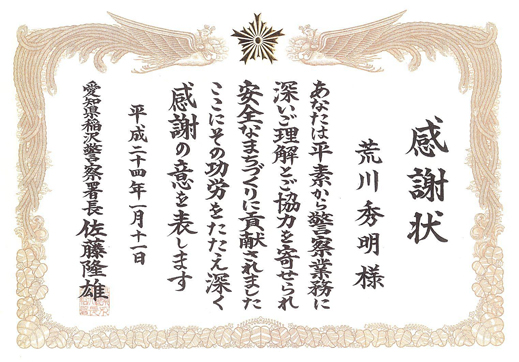 感謝状
荒川秀明様
あなたは平素から警察業務に
深いご理解とご協力を寄せられ
安全なまちづくりに貢献されました
ここにその功労をたたえ深く
感謝の意を表します
平成二十四年一月十一日
愛知県稲沢警察署長 佐藤隆雄